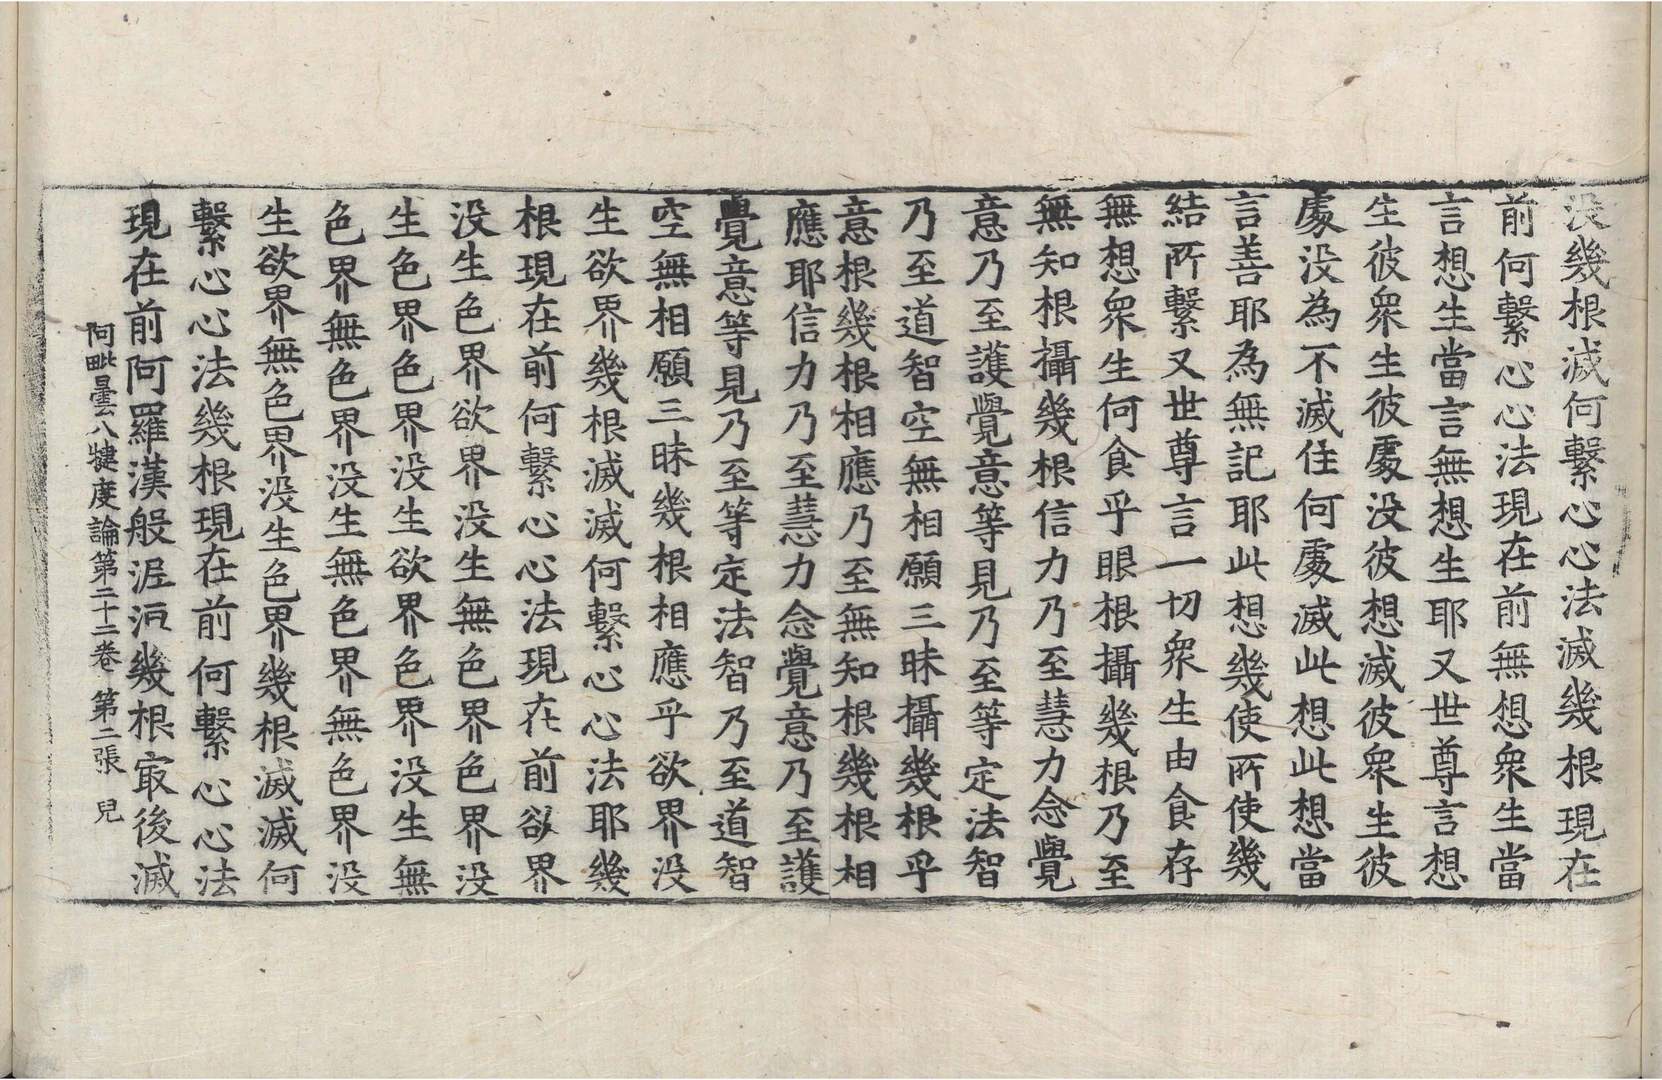 没幾根滅何繫心心法滅幾根現在
前何繫心心法現在前無想衆生當
言想生當言無想生耶又世尊言想
生彼衆生彼處没彼想滅彼衆生彼
處没為不滅住何處滅此想此想當
言善耶為無記耶此想幾使所使幾
結所繫又世尊言一切衆生由食存
無想衆生何食乎眼根攝幾根乃至
無知根攝幾根信力乃至慧力念覺
意乃至護覺意等見乃至等定法智
乃至道智空無相願三昧攝幾根乎
意根幾根相應乃至無知根幾根相
應耶信力乃至慧力念覺意乃至護
覺意等見乃至等定法智乃至道智
空無相願三昧幾根相應乎欲界没
生欲界幾根滅滅何繫心心法耶幾
根現在前何繫心心法現在前欲界
没生色界欲界没生無色界色界没
生色界色界没生欲界色界没生無
色界無色界没生無色界無色界没
生欲界無色界没生色界幾根滅滅何
繫心心法幾根現在前何繫心心法
現在前阿羅漢般泥洹幾根㝡後滅
阿毗曇八犍度論第二十二卷 第二張 兒